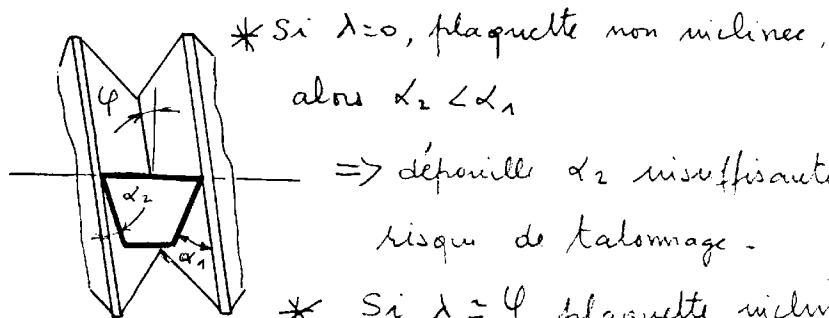 * Si λ=0, plaquette non inclinee,
alors α₂ < α₁
=> dépouille α₂ insuffisante
risque de talonnage.
* Si λ = φ plaquette inclin
φ
α₂
α₁